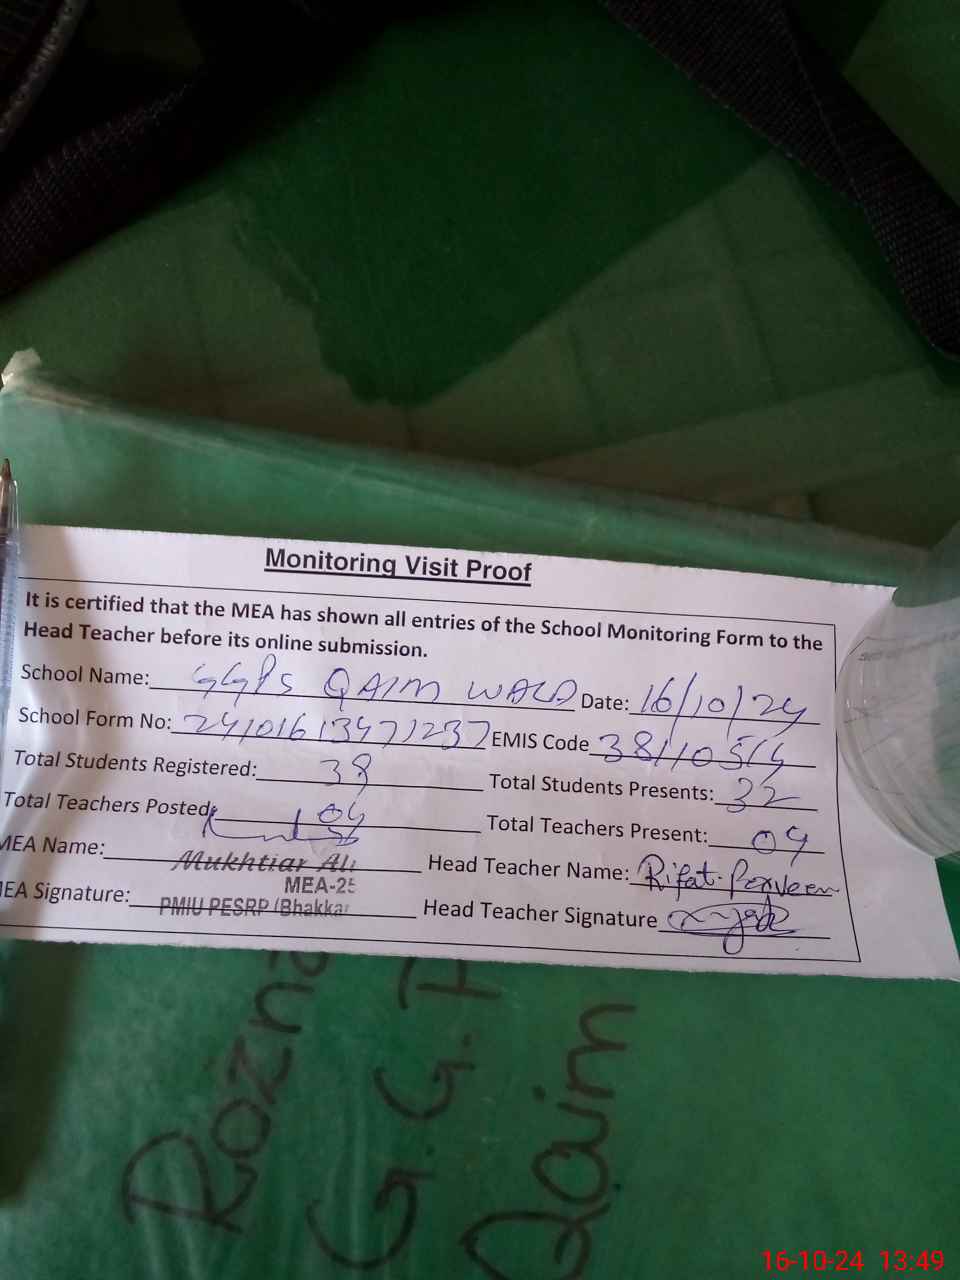 Monitoring Visit Proof
It is certified that the MEA has shown all entries of the School Monitoring Form to the
Head Teacher before its online submission.
School Name: GGPS QAIM WALA Date: 16/10/24
School Form No: 24101613471237 EMIS Code 38110514
Total Students Registered: 38 Total Students Presents: 32
Total Teachers Posted: 04 Total Teachers Present: 04
MEA Name: Mukhtiar Ali Head Teacher Name: Rifat Parveen
MEA-25
EA Signature: PMIU PESRP (Bhakkar Head Teacher Signature
Rozna
G.G.P
Qaim
16-10-24 13:49